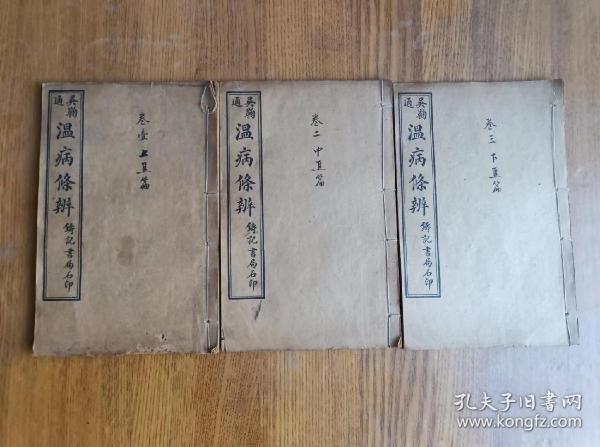 吳鞠通
溫病條辨
鑄記書局石印
卷壹 上焦篇
吳鞠通
溫病條辨
鑄記書局石印
卷二 中焦篇
吳鞠通
溫病條辨
鑄記書局石印
卷三 下焦篇
孔夫子旧书网
www.kongfz.com